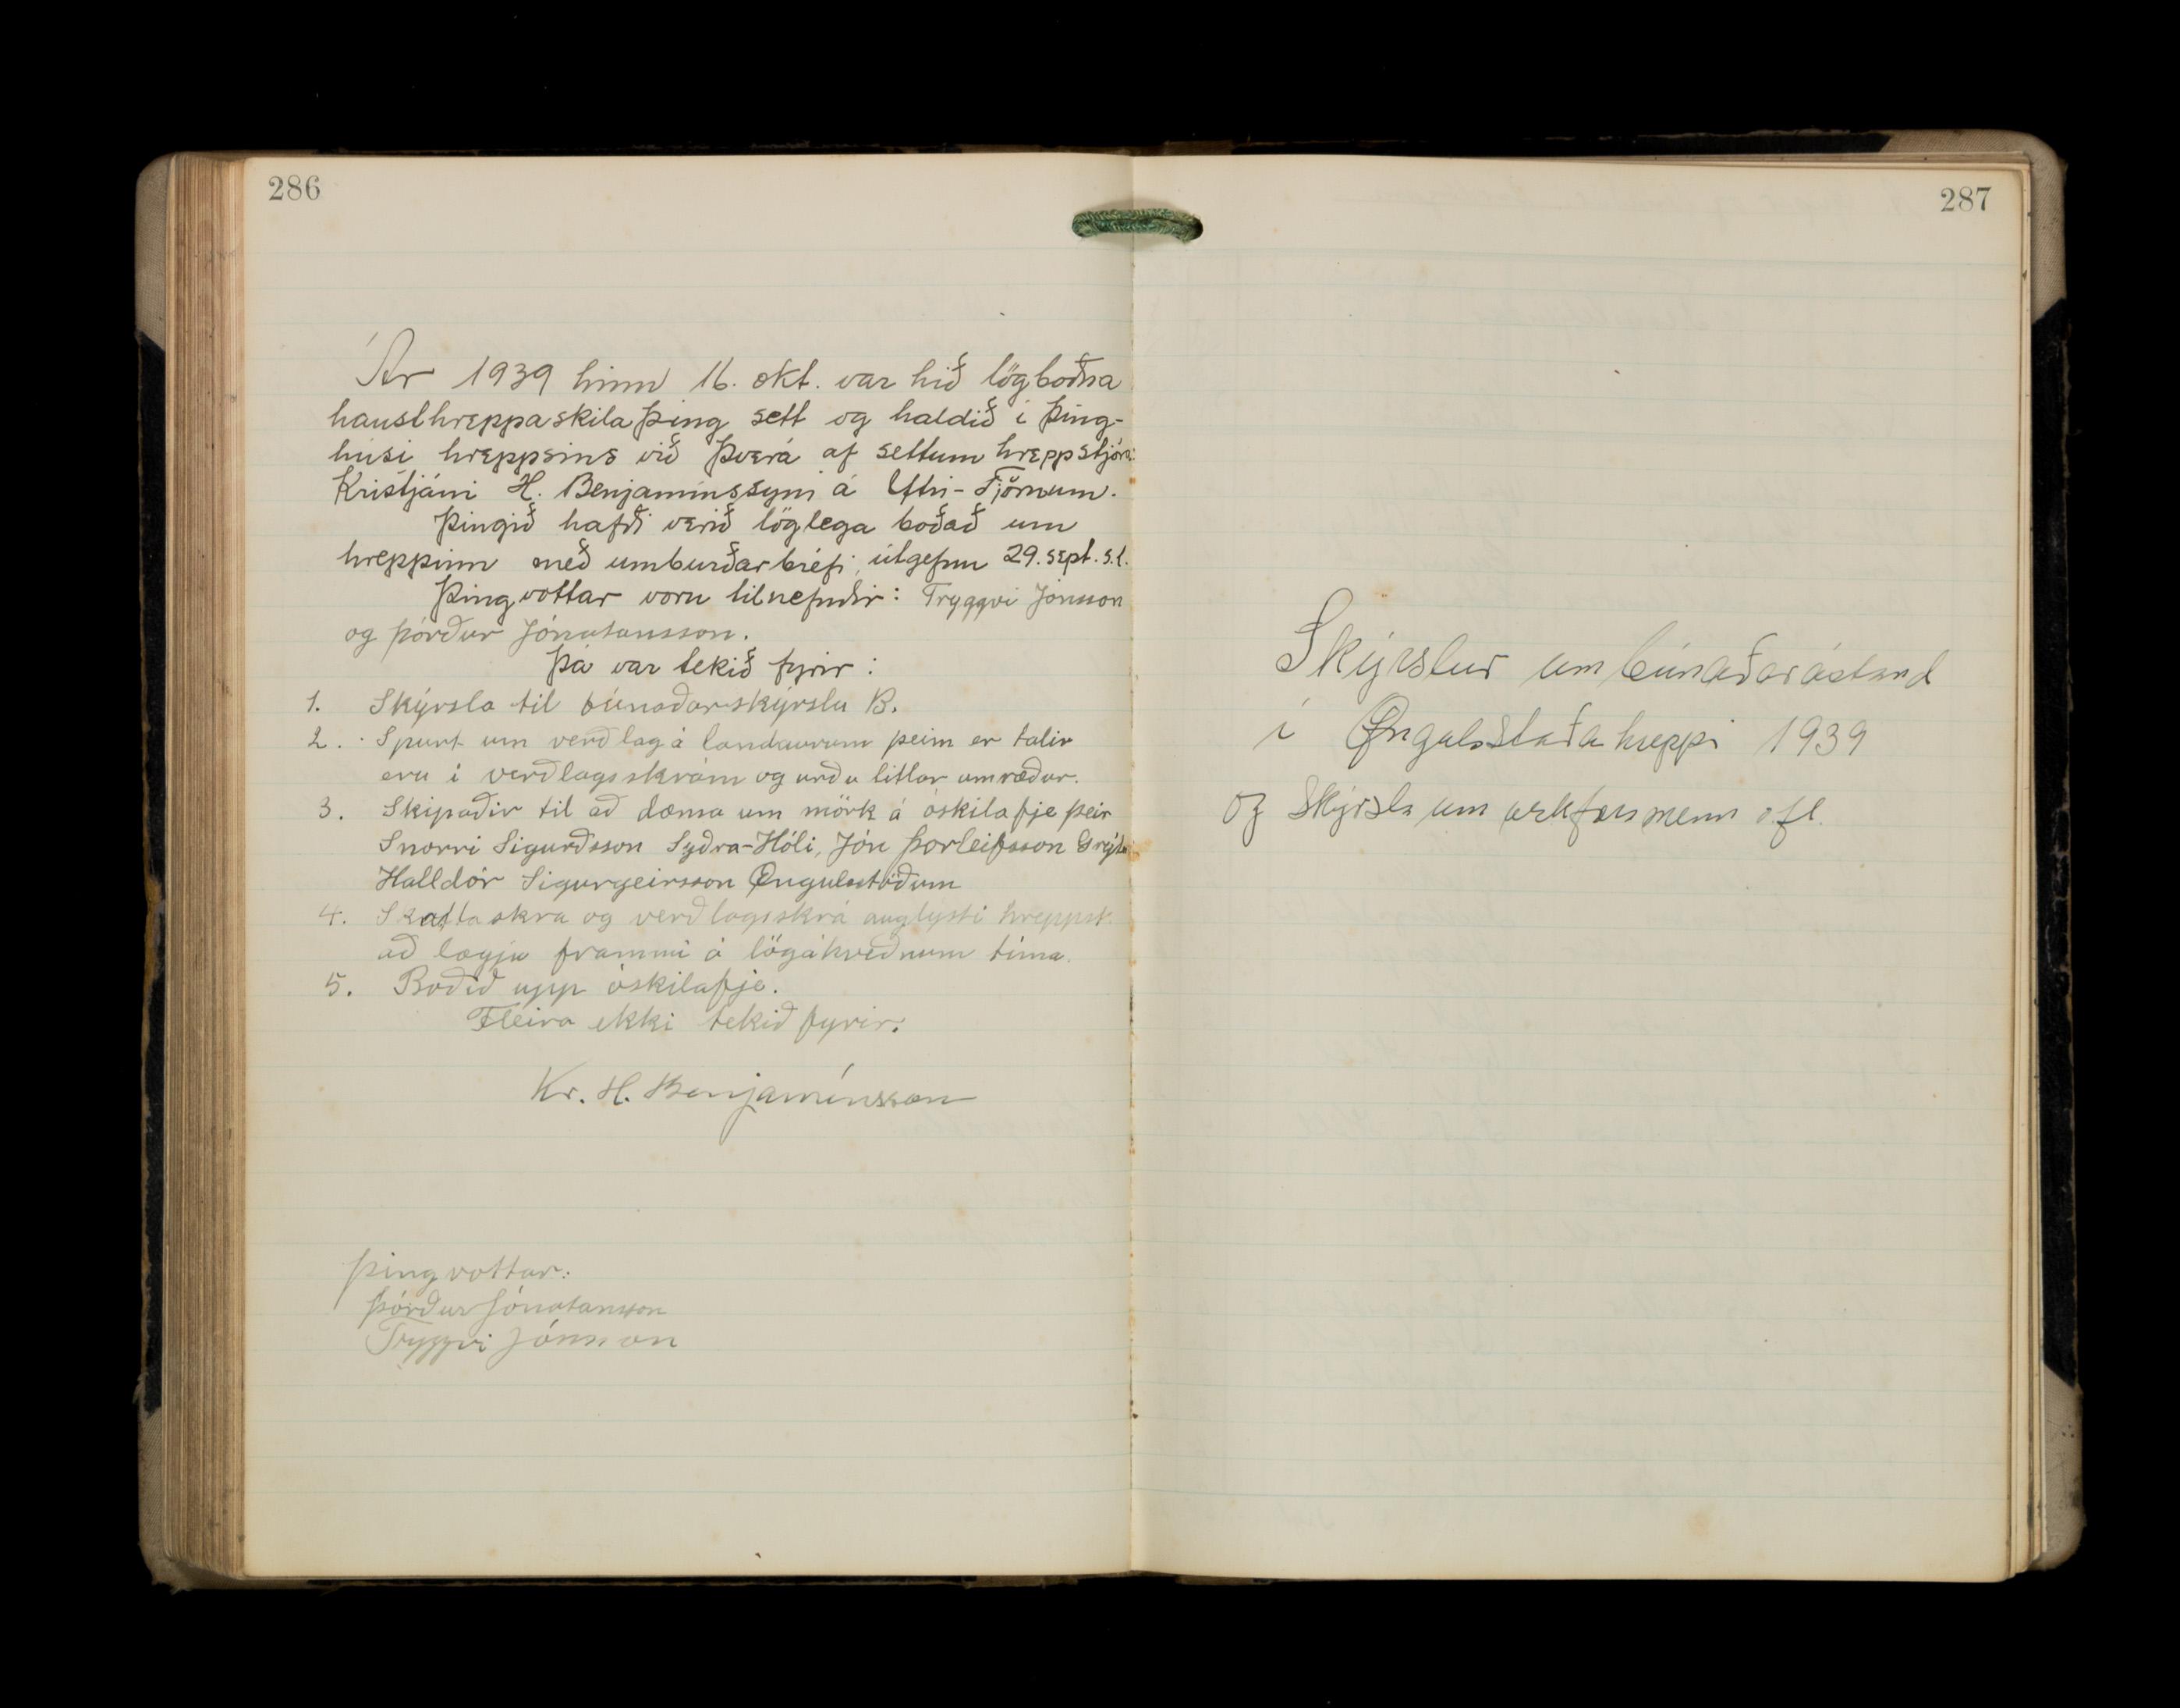 286
Ár 1939 hinn 16. okt. var hið lögboðna
hausthreppaskilaþing sett og haldið í þing-
húsi hreppsins við Þverá af settum hreppstjóra
Kristjáni H. Benjamínssyni á Ytri-Tjörnum.
Þingið hafði verið löglega boðað um
hreppinn með umburðarbréfi, útgefnu 29. sept. s.l.
Þingvottar voru tilnefndir: Tryggvi Jónsson
og Þórður Jónatansson.
Þá var tekið fyrir:
1. Skýrsla til búnaðarskýrslu B.
2. Spurt um verðlag á landaurum þeim er talir
eru í verðlagsskrám og urðu litlar umræður.
3. Skipaðir til að dæma um mörk á óskilafje þeir
Snorri Sigurðsson Syðra-Hóli, Jón Þorleifsson Grýtu
Halldór Sigurgeirsson Øngulsstöðum
4. Skattaskra og verðlagsskrá auglysti hreppst.
að lægju frammi á lögákveðnum tíma.
5. Boðið upp óskilafje.
Fleira ekki tekið fyrir.
Kr. H. Benjamínsson
Þingvottar:
Þórður Jónatansson
Tryggvi Jónsson
287
Skýrslur um búnaðarástand
í Øngulsstaðahreppi 1939
og skýrsla um verkfærsmenn o.fl.